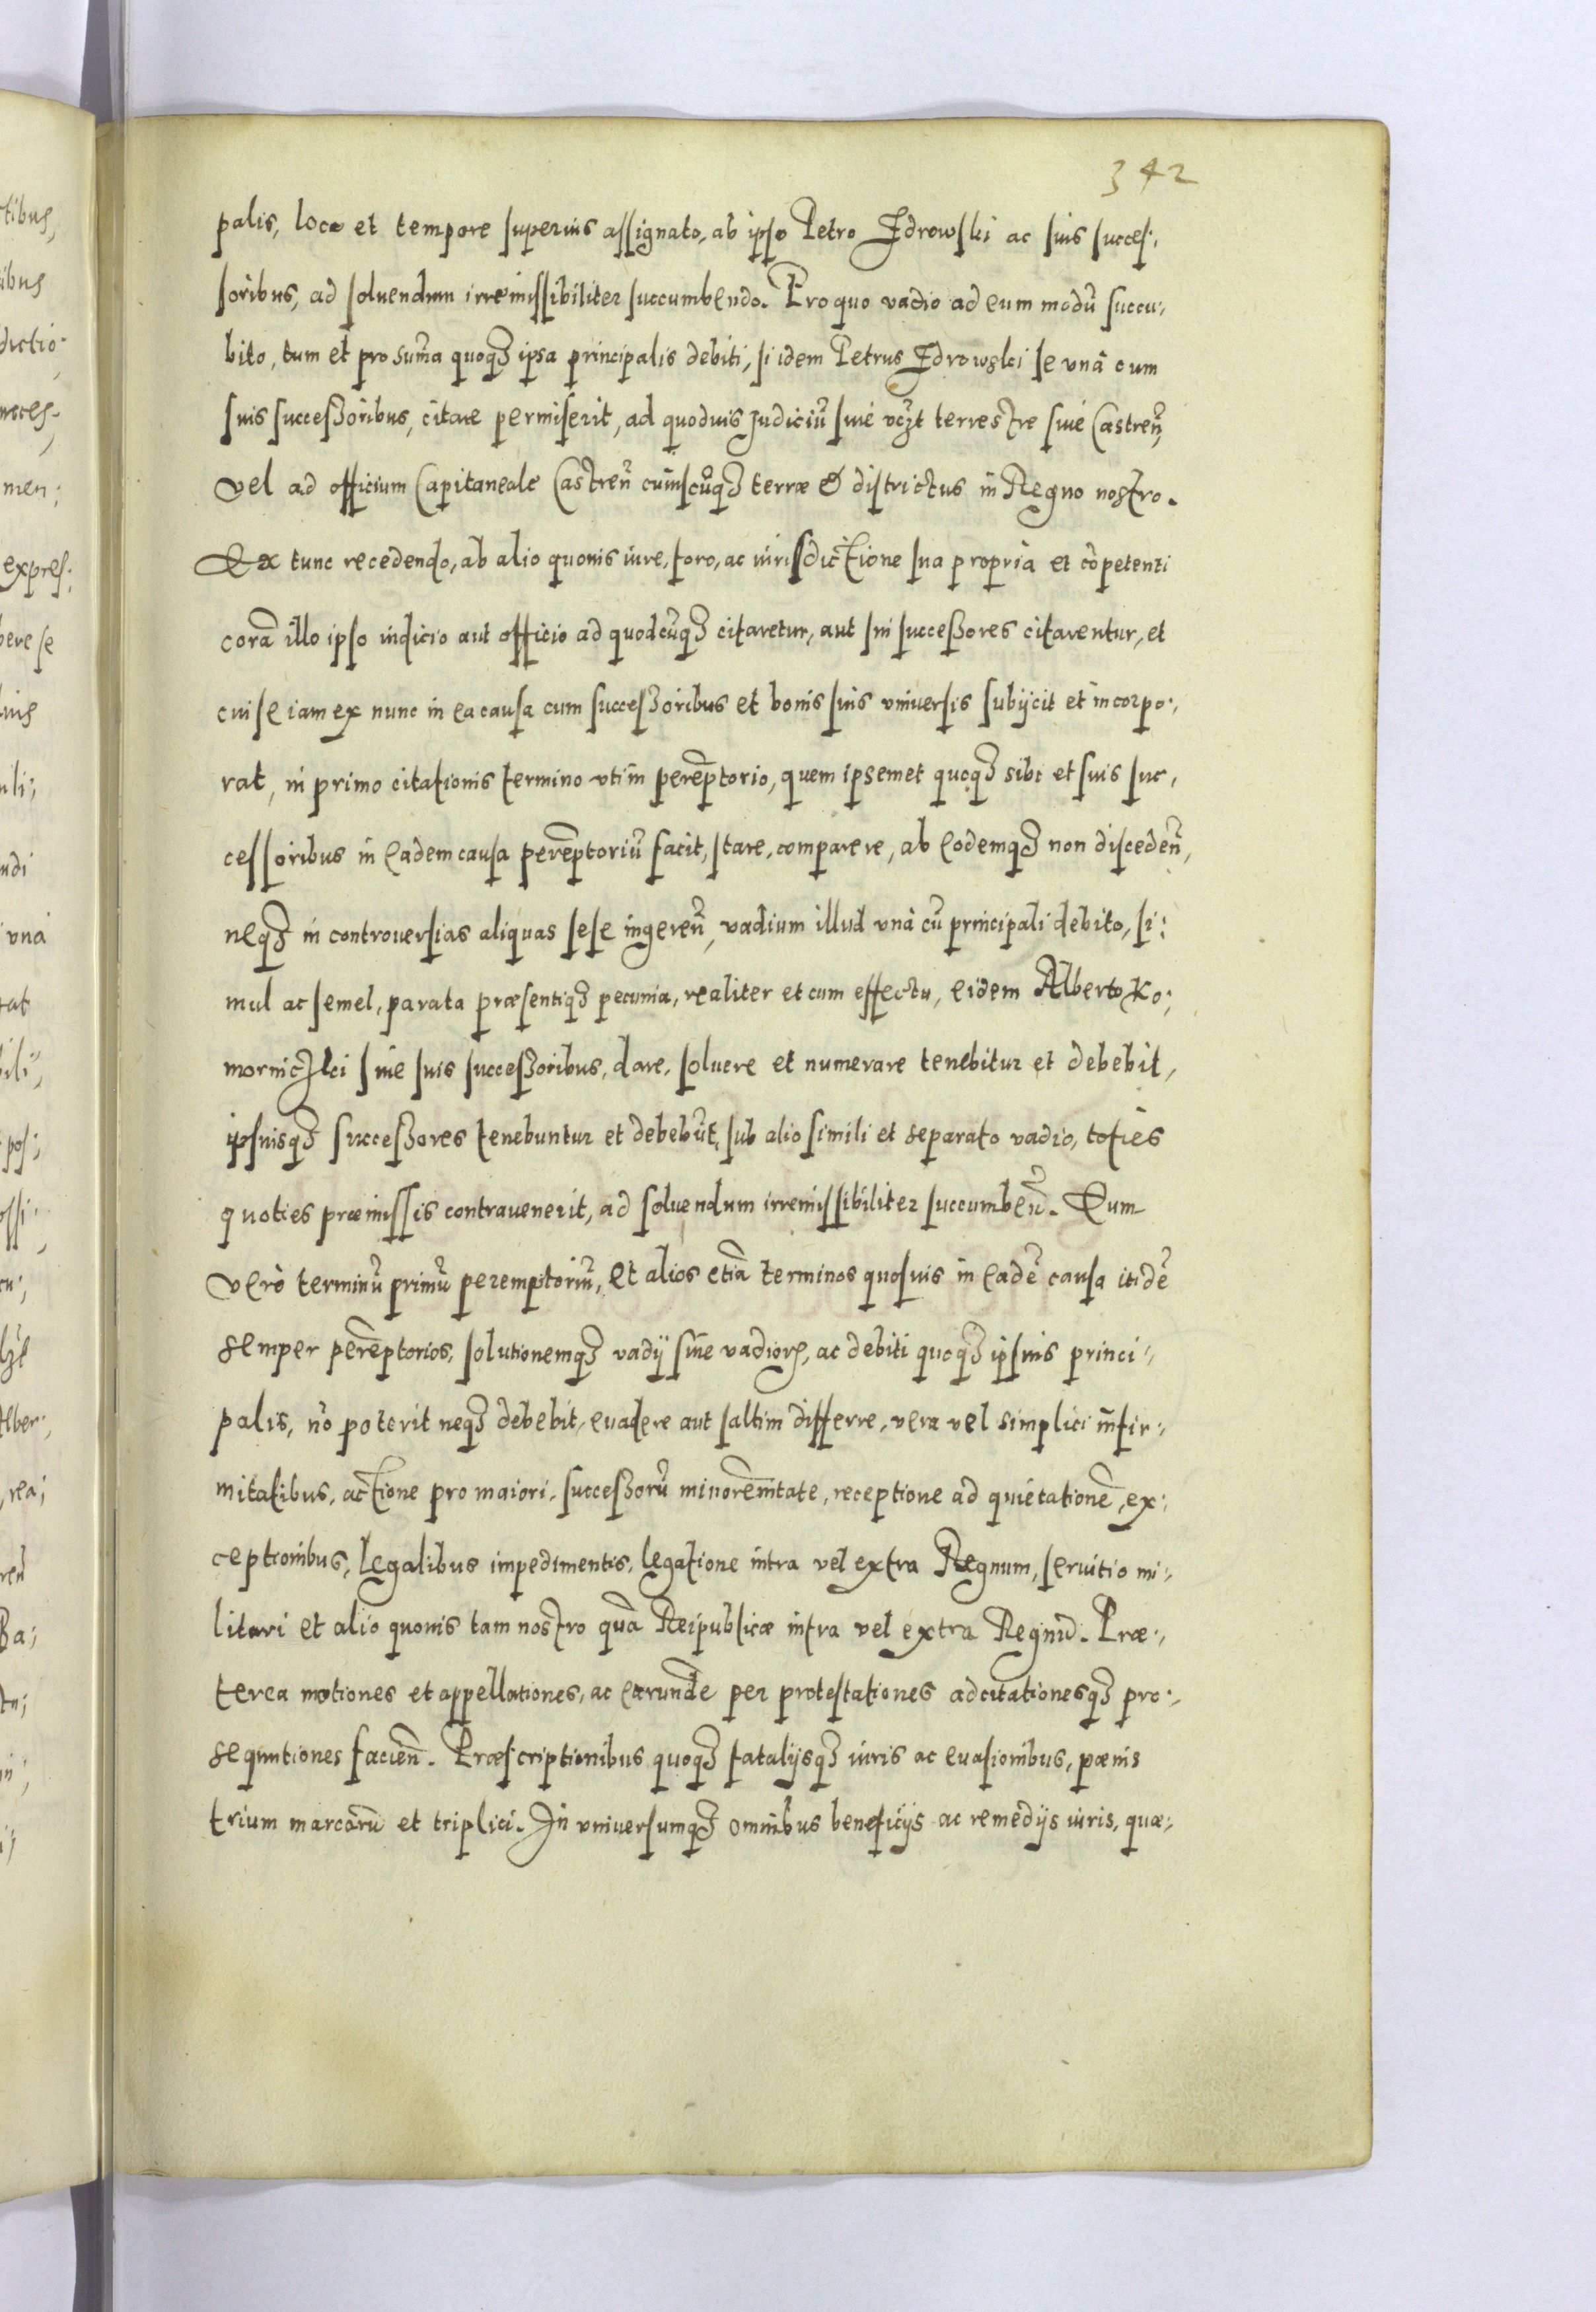 342
palis, loco et tempore superius assignato, ab ipso Petro Zdrowski ac suis succes:,
soribus, ad soluendum irremissibiliter succumbendo. Pro quo vadio ad eum modũ succu:,
bito, tum et pro sum̃a quoq3 ipsa principalis debiti, si idem Petrus Zdrowski se vnà cum
suis successoribus, citare permiserit, ad quoduis Judiciũ siue vc3t terrestre siue Castreñ,
vel ad officium Capitaneale Castreñ cuiuscũq3 terræ & districtus in Regno nostro.
Ex tunc recedendo, ab alio quouis iure, foro, ac iurisdictione sua propria et cõpetenti
corã illo ipso iudicio aut officio ad quodcũq3 citaretur, aut sui successores citarentur, et
cui se iam ex nunc in ea causa cum successoribus et bonis suis vniuersis subijcit et incorpo:,
rat, in primo citationis termino vtim perẽptorio, quem ipsemet quoq3 sibi et suis suc,
cessoribus in eadem causa perẽptoriũ facit, stare, comparere, ab eodemq3 non discedeñ,
neq3 in controuersias aliquas sese ingereñ, vadium illud vnà cũ principali debito, si:
mul ac semel, parata præsentiq3 pecunia, realiter et cum effectu, eidem Alberto Ko:
mornic3ki siue suis successoribus, dare, soluere et numerare tenebitur et debebit,
ipsiusq3 successores tenebuntur et debebũt, sub alio simili et separato vadio, toties
quoties præmissis contrauenerit, ad soluendum irremissibiliter succumbeñ. Eum
verò terminũ primũ peremptoriũ, et alios etiã terminos quosuis in eadẽ causa itidẽ
semper perẽptorios, solutionemq3 vadij siue vadiorꝝ, ac debiti quoq3 ipsius princi:,
palis, nõ poterit neq3 debebit, euadere aut saltim differre, vera vel simplici infir:,
mitatibus, actione pro maiori, successorũ minorẽnitate, receptione ad quietationẽ, ex:
ceptionibus, legalibus impedimentis, legatione intra vel extra Regnum, seruitio mi:,
litari et alio quouis tam nostro quã Reipublicæ intra vel extra Regnũ. Præ:,
terea motiones et appellationes, ac earundẽ per protestationes adcitationesq3 pro:,
sequutiones facieñ. Præscriptionibus quoq3 fatalijsq3 iuris ac euasionibus, pœnis
trium marcarũ et triplici. In vniuersumq3 omnibus beneficijs ac remedijs iuris, quæ:,